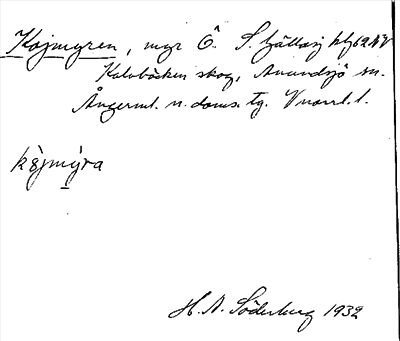 Kojmyren, myr Ö. S. Gällasj kbl 62 NV
Kalvbäcken skog, Anundsjö sn.
Ångerml. n. doms. tg. Vnorrl. l.
kö̀jmýra
H. A. Söderberg 1932